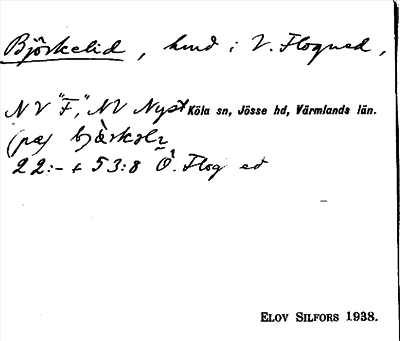 Björkelid, hmd i V. Flogned,
NV "F", NV Nyst Köla sn, Jösse hd, Värmlands län.
(på)
22:- + 53:8 Ö. Flog ed
ELOV SILFORS 1938.